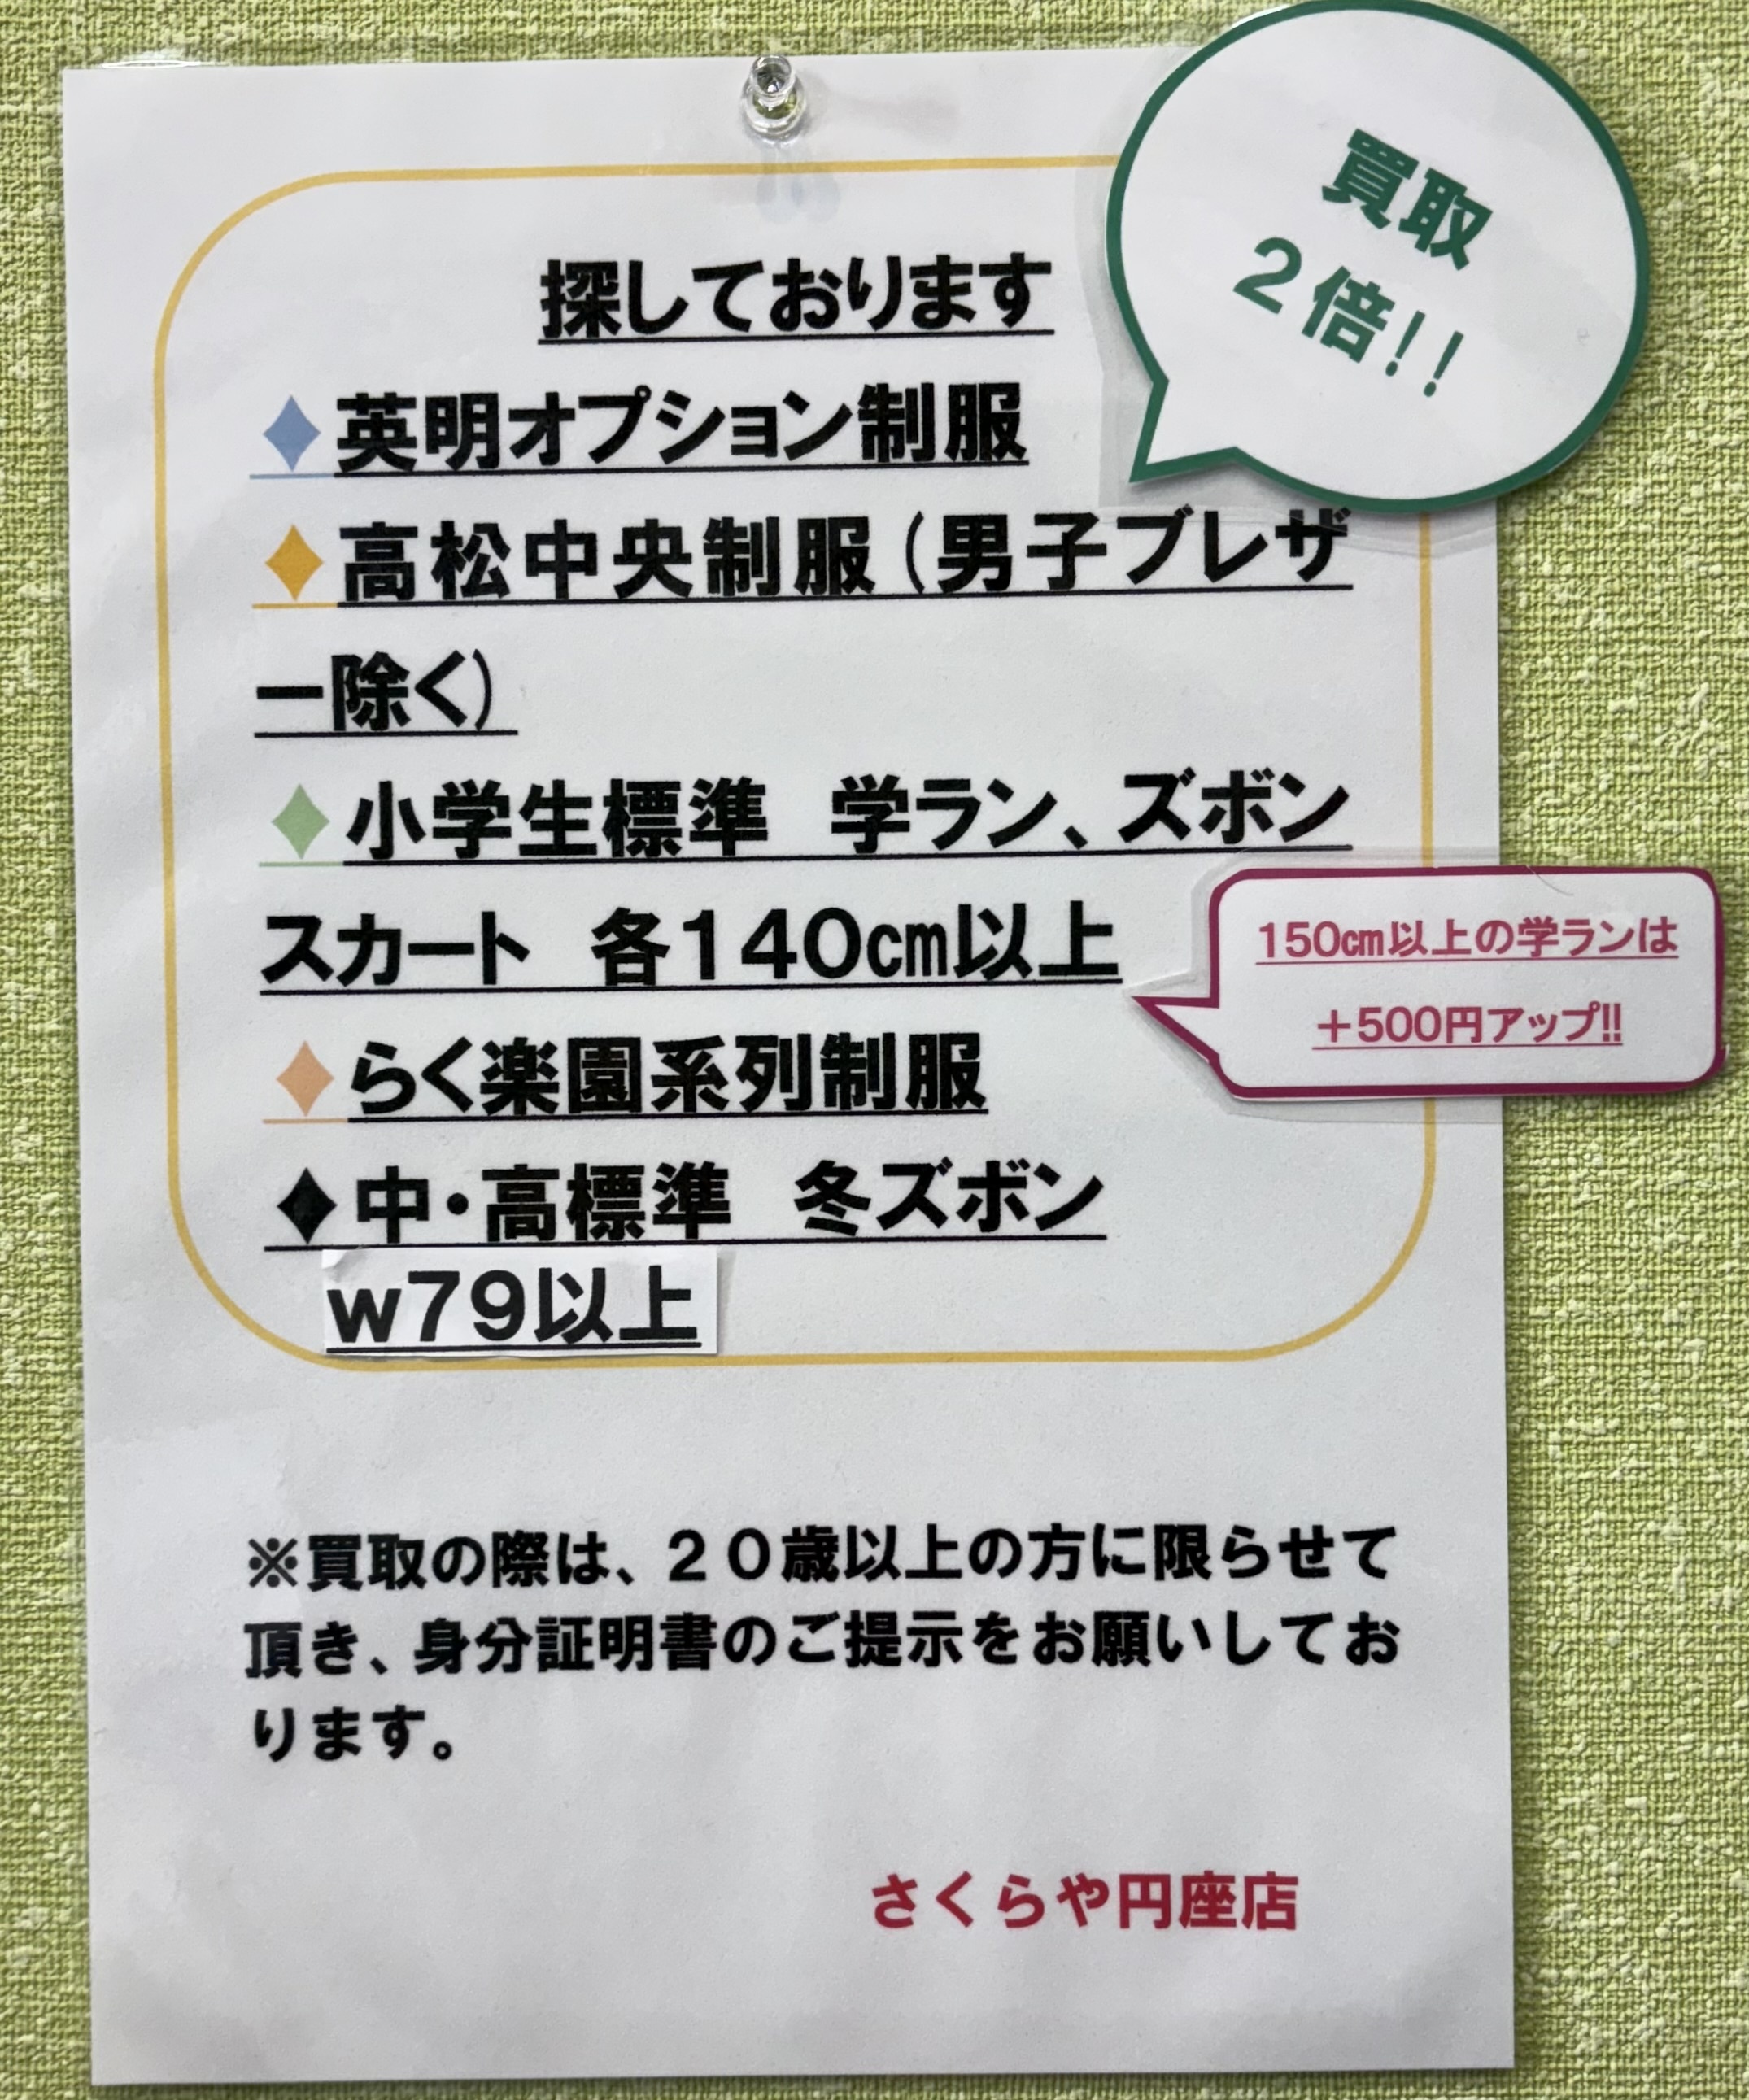 買取
2倍!!
探しております
♦英明オプション制服
♦高松中央制服(男子ブレザ
ー除く)
♦小学生標準　学ラン、ズボン
スカート　各140㎝以上
150㎝以上の学ランは
+500円アップ!!
♦らく楽園系列制服
♦中・高標準　冬ズボン
w79以上
※買取の際は、20歳以上の方に限らせて
頂き、身分証明書のご提示をお願いしてお
ります。
さくらや円座店